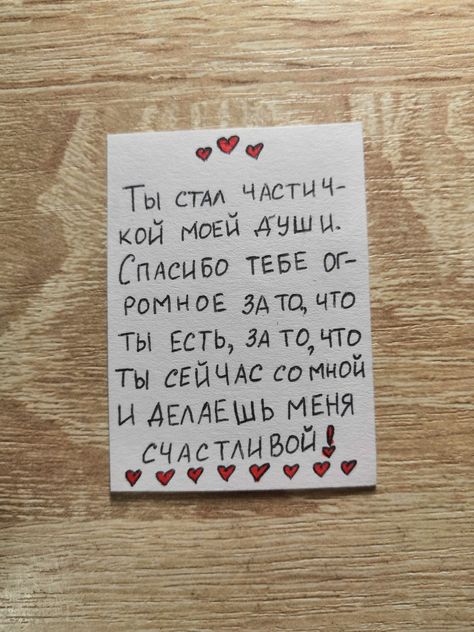 Ты стал частич-
кой моей души.
Спасибо тебе ог-
ромное за то, что
ты есть, за то, что
ты сейчас со мной
и делаешь меня
счастливой!